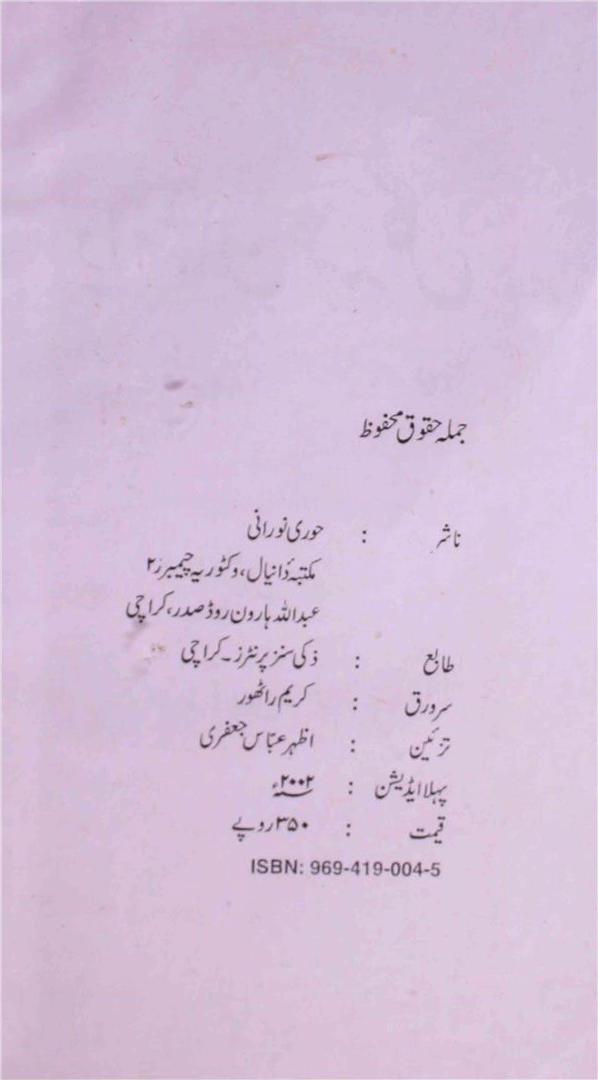 جملہ حقوق محفوظ
ناشر : حوری نورانی
مکتبۂ دانیال، وکٹوریہ چیمبرز ۲
عبداللہ ہارون روڈ صدر، کراچی
طابع : ذکی سنز پرنٹرز۔ کراچی
سرورق : کریم راٹھور
تزئین : اظہر عباس جعفری
پہلا ایڈیشن : ۲۰۰۲ء
قیمت : ۳۵۰ روپے
ISBN: 969-419-004-5